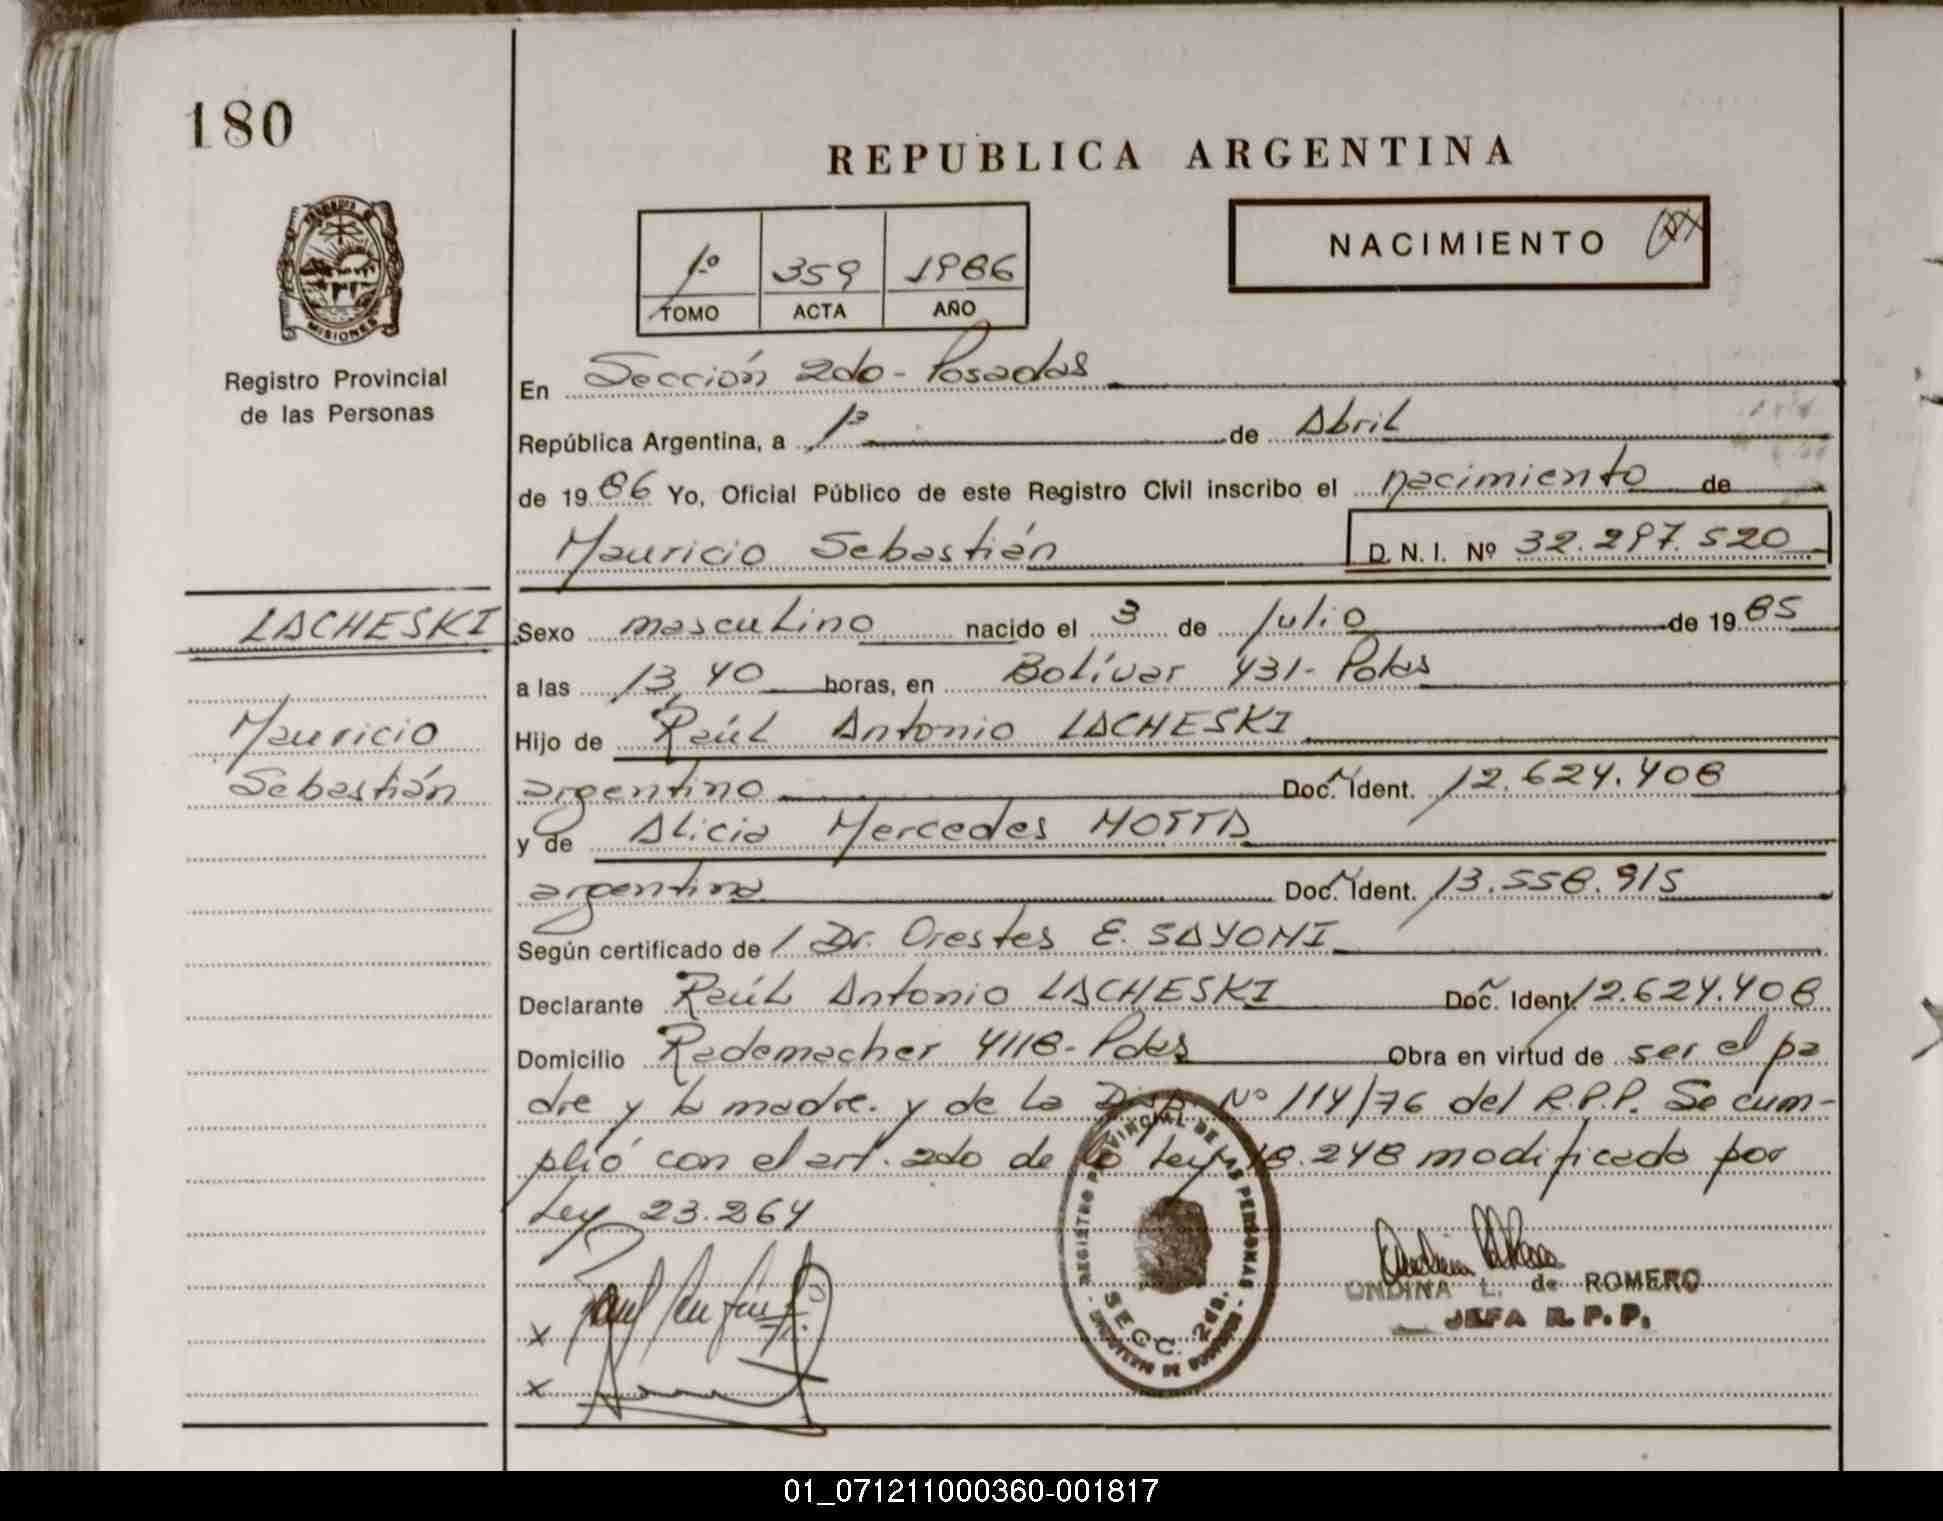 180
REPUBLICA ARGENTINA
NACIMIENTO
1º 359 1986
TOMO ACTA AÑO
MISIONES
Registro Provincial
de las Personas
En Sección 2da - Posadas
República Argentina, a 1º de Abril
de 1986 Yo, Oficial Público de este Registro Civil inscribo el nacimiento de
Mauricio Sebastián D. N. I. Nº 32.297.520
LACHESKI
Mauricio
Sebastián
Sexo masculino nacido el 3 de Julio de 1985
a las 13,40 horas, en Bolívar 431 - Pdas
Hijo de Raúl Antonio LACHESKI
argentino Doc. Ident. 12.624.408
y de Alicia Mercedes MOTTA
argentina Doc. Ident. 13.558.915
Según certificado de Dr. Orestes E.
Declarante Raúl Antonio LACHESKI Doc. Ident. 12.624.408
Domicilio Rademacher 4118 - Pdas Obra en virtud de ser el pa
dre y la madre. y de la Disp. Nº 114/76 del R.P.P. Se cum-
plió con el art. 2do de la Ley 18.248 modificado por
Ley 23.264
REGISTRO PROVINCIAL DE LAS PERSONAS
SECC. 2da.
x
x
ONDINA L. de ROMERO
JEFA R.P.P.
01_071211000360-001817